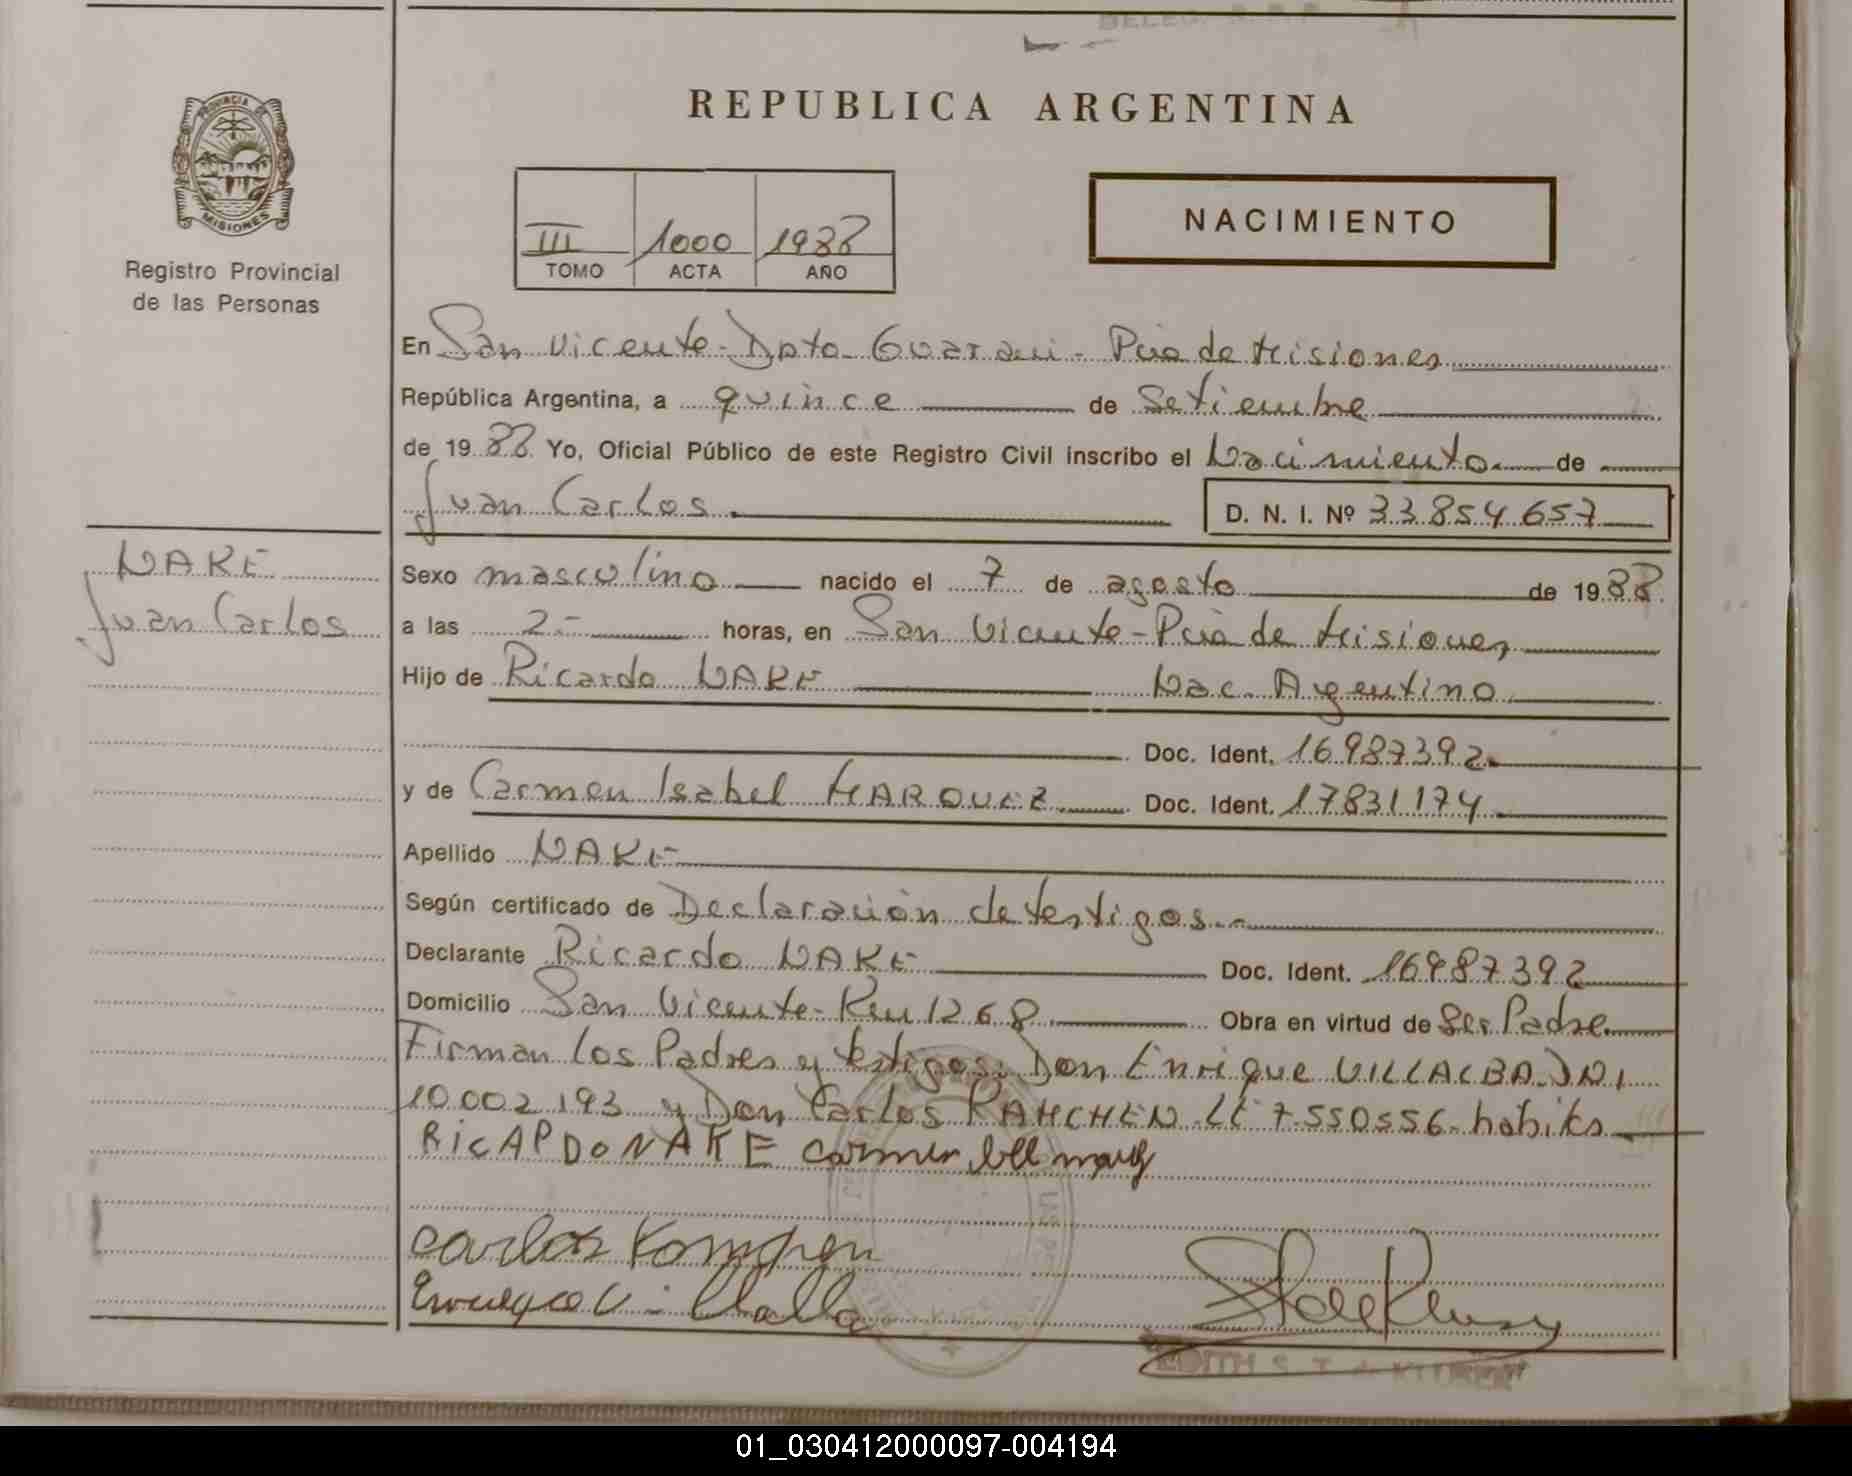 REPUBLICA ARGENTINA
PROVINCIA DE
MISIONES
Registro Provincial
de las Personas
III 1000 1988
TOMO ACTA AÑO
NACIMIENTO
En San Vicente - Dpto Guarani - Pcia de Misiones
República Argentina, a quince de Setiembre
de 1988 Yo, Oficial Público de este Registro Civil inscribo el Nacimiento de
Juan Carlos. D. N. I. Nº 33.854.657
NAKE
Juan Carlos
Sexo masculino nacido el 7 de agosto de 1988.
a las 2.- horas, en San Vicente - Pcia de Misiones
Hijo de Ricardo NAKE Nac. Argentino
Doc. Ident. 16987392.
y de Carmen Isabel MARQUEZ Doc. Ident. 17831174
Apellido NAKE
Según certificado de Declaración de testigos.-
Declarante Ricardo NAKE Doc. Ident. 16987392
Domicilio San Vicente - Km 1268 Obra en virtud de Ser Padre.
Firman los Padres y testigos: Don Enrique VILLALBA DNI
10.002.193 y Don Carlos KAMCHEN LE 7.550556- habiles
RiCARDO NAKE Carmen
Carlos
EDITH S. T. de
01_030412000097-004194